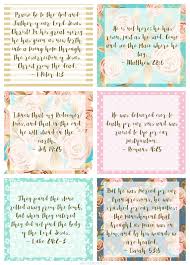 Praise be to the God and
Father of our Lord Jesus
Christ! In his great mercy
he has given us new birth
into a living hope through
the resurrection of Jesus
Christ from the dead.
- 1 Peter 1:3
He is not here; he has
risen, just as he said. Come
and see the place where he
lay.
Matthew 28:6
I know that my Redeemer
lives, and that in the end
he will stand on the
earth.
Job 19:25
He was delivered over to
death for our sins and was
raised to life for our
justification.
- Romans 4:25
They found the stone
rolled away from the tomb,
but when they entered,
they did not find the body
of the Lord Jesus.
- Luke 24:2-3
But he was pierced for our
transgressions, he was
crushed for our iniquities;
the punishment that
brought us peace was on
him, and by his wounds
we are healed.
- Isaiah 53:5